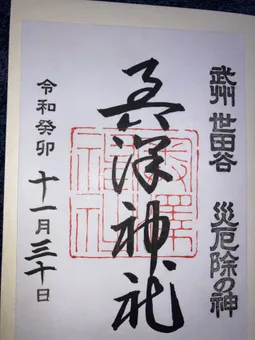 武州 世田谷 災厄除の神
奥澤神社
奥澤神社
令和癸卯 十一月三十日